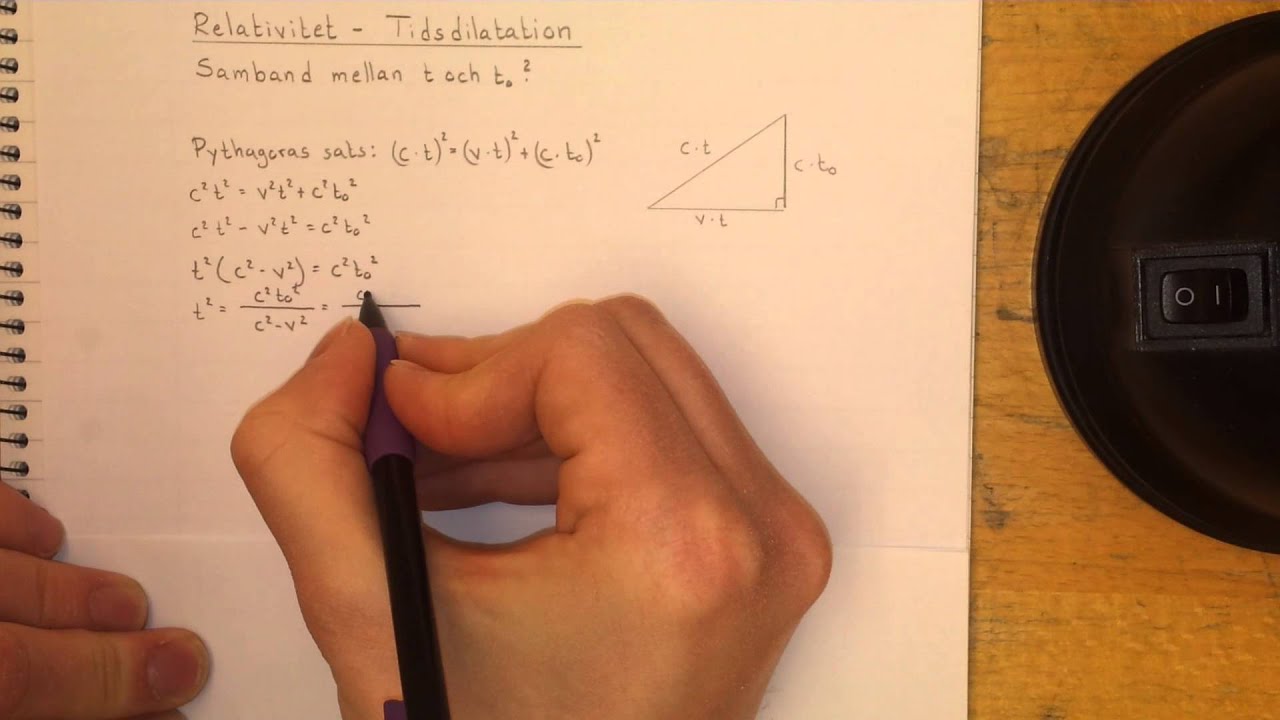 Relativitet - Tidsdilatation
Samband mellan t och t₀?
Pythagoras sats: (c·t)² = (v·t)² + (c·t₀)²
c²t² = v²t² + c²t₀²
c²t² - v²t² = c²t₀²
t²(c² - v²) = c²t₀²
t² = c²t₀² / c² - v² = c
c·t
c·t₀
v·t
O I